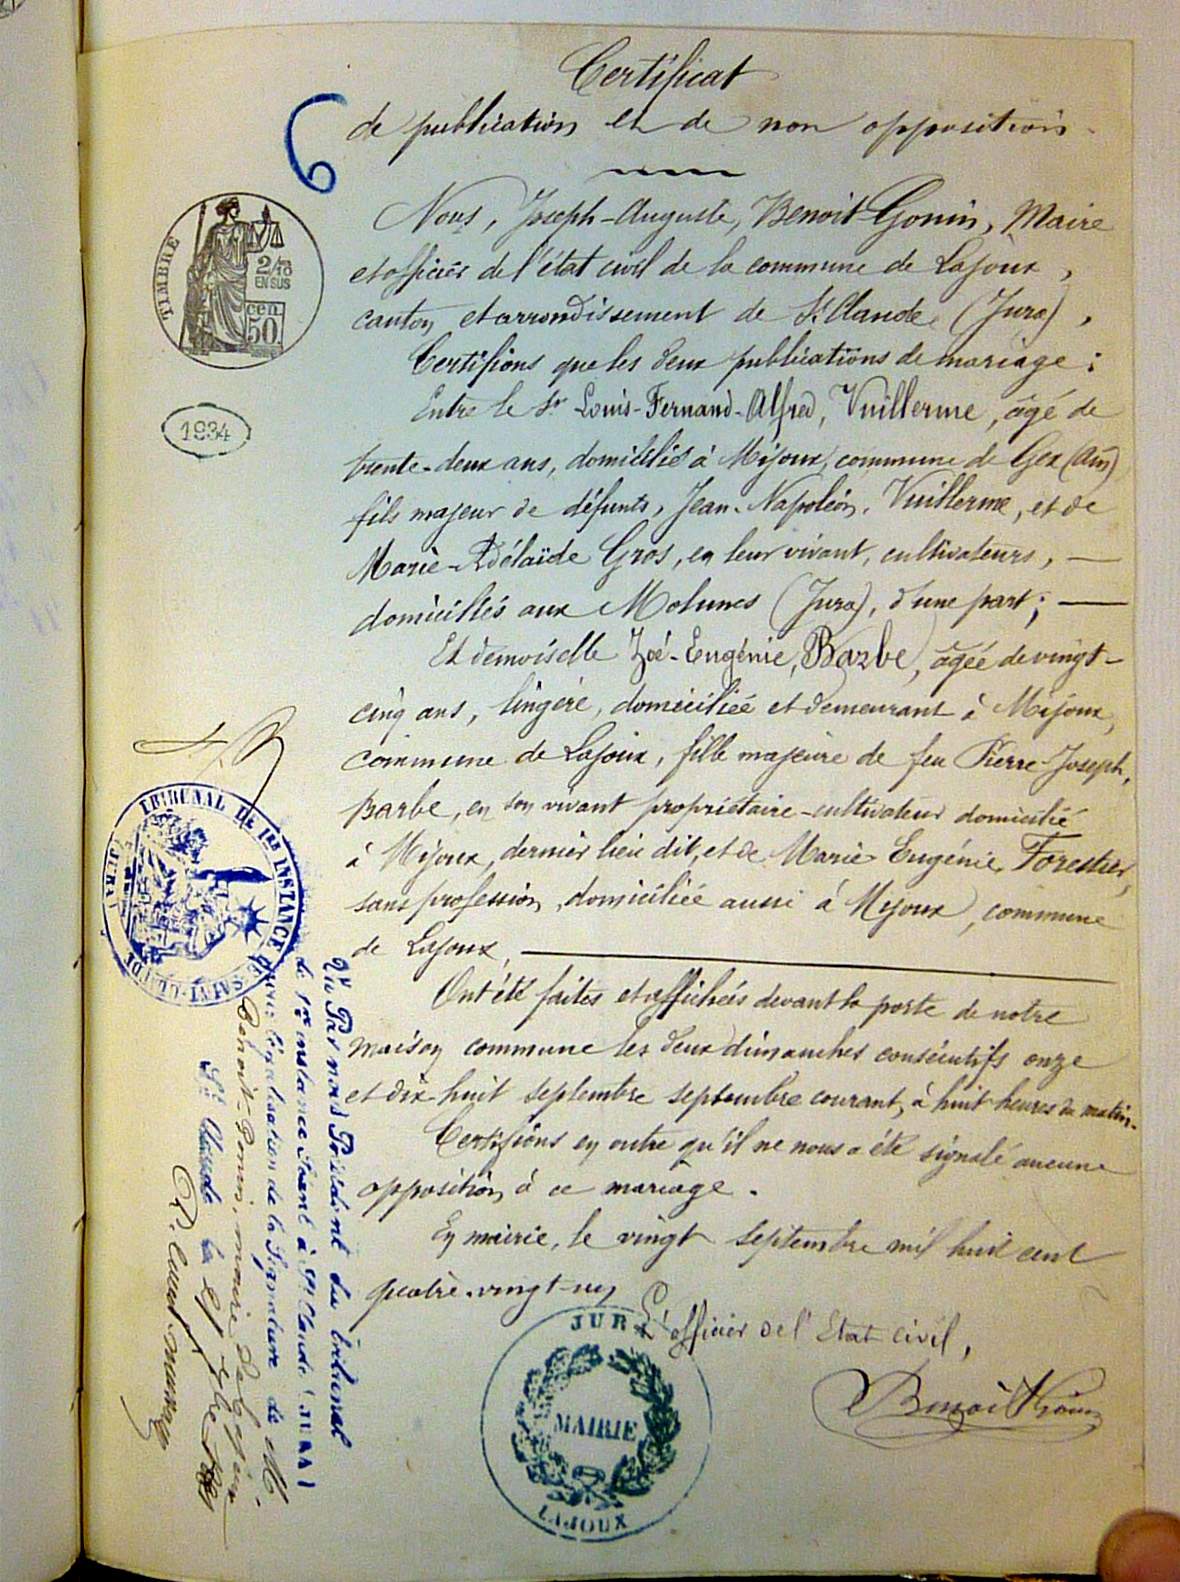 Certificat
de publication et de non opposition.
6
Nous, Joseph-Auguste, Benoit-Gonin, Maire
et officier de l'état civil de la commune de Lajoux,
canton et arrondissement de St Claude (Jura),
Certifions que les deux publications de mariage :
Entre le Sr Louis-Fernand-Alfred, Vuillerme, âgé de
trente-deux ans, domicilié à Mijoux, commune de Gex (Ain)
fils majeur de défunts, Jean-Napoléon, Vuillerme, et de
Marie-Adélaïde Gros, en leur vivant, cultivateurs, —
domiciliés aux Molunes (Jura), d'une part; —
Et demoiselle Zoé-Eugénie, Barbe, âgée de vingt-
cinq ans, lingère, domiciliée et demeurant à Mijoux,
commune de Lajoux, fille majeure de feu Pierre-Joseph,
Barbe, en son vivant propriétaire-cultivateur domicilié
à Mijoux, dernier lieu dit, et de Marie Eugénie, Forestier,
sans profession, domiciliée aussi à Mijoux, commune
de Lajoux, —
Ont été faites et affichées devant la porte de notre
maison commune les deux dimanches consécutifs onze
et dix-huit septembre septembre courant, à huit heures du matin.
Certifions en outre qu'il ne nous a été signalé aucune
opposition à ce mariage.
En mairie, le vingt septembre mil huit cent
quatre-vingt-un
L'officier de l'Etat civil,
Benoit Gonin
TIMBRE
2/10
EN SUS
cen.
50
1934
TRIBUNAL DE 1RE INSTANCE DE SAINT-CLAUDE (JURA)
Vu Par nous Président du tribunal
de 1re instance séant à St Claude (JURA)
pour légalisation de la Signature de M.
Benoit-Gonin, maire de Lajoux
St Claude le
JURA
MAIRIE
LAJOUX